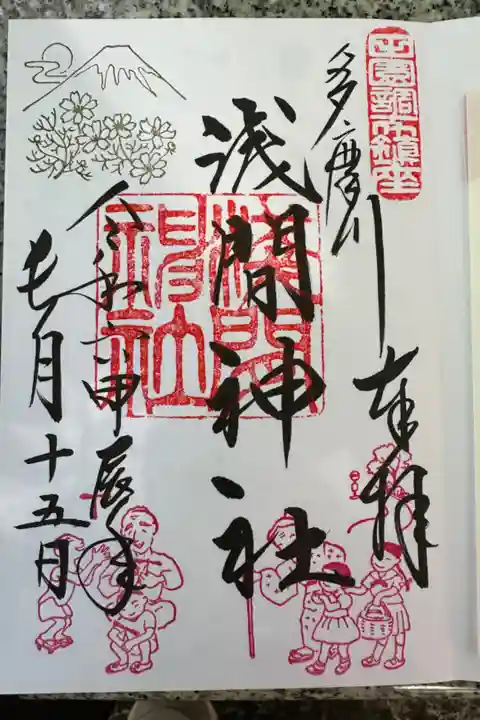 田園調布鎮座
多摩川
奉拝
浅間神社
浅間
神社
令和六甲辰年
長月十五日